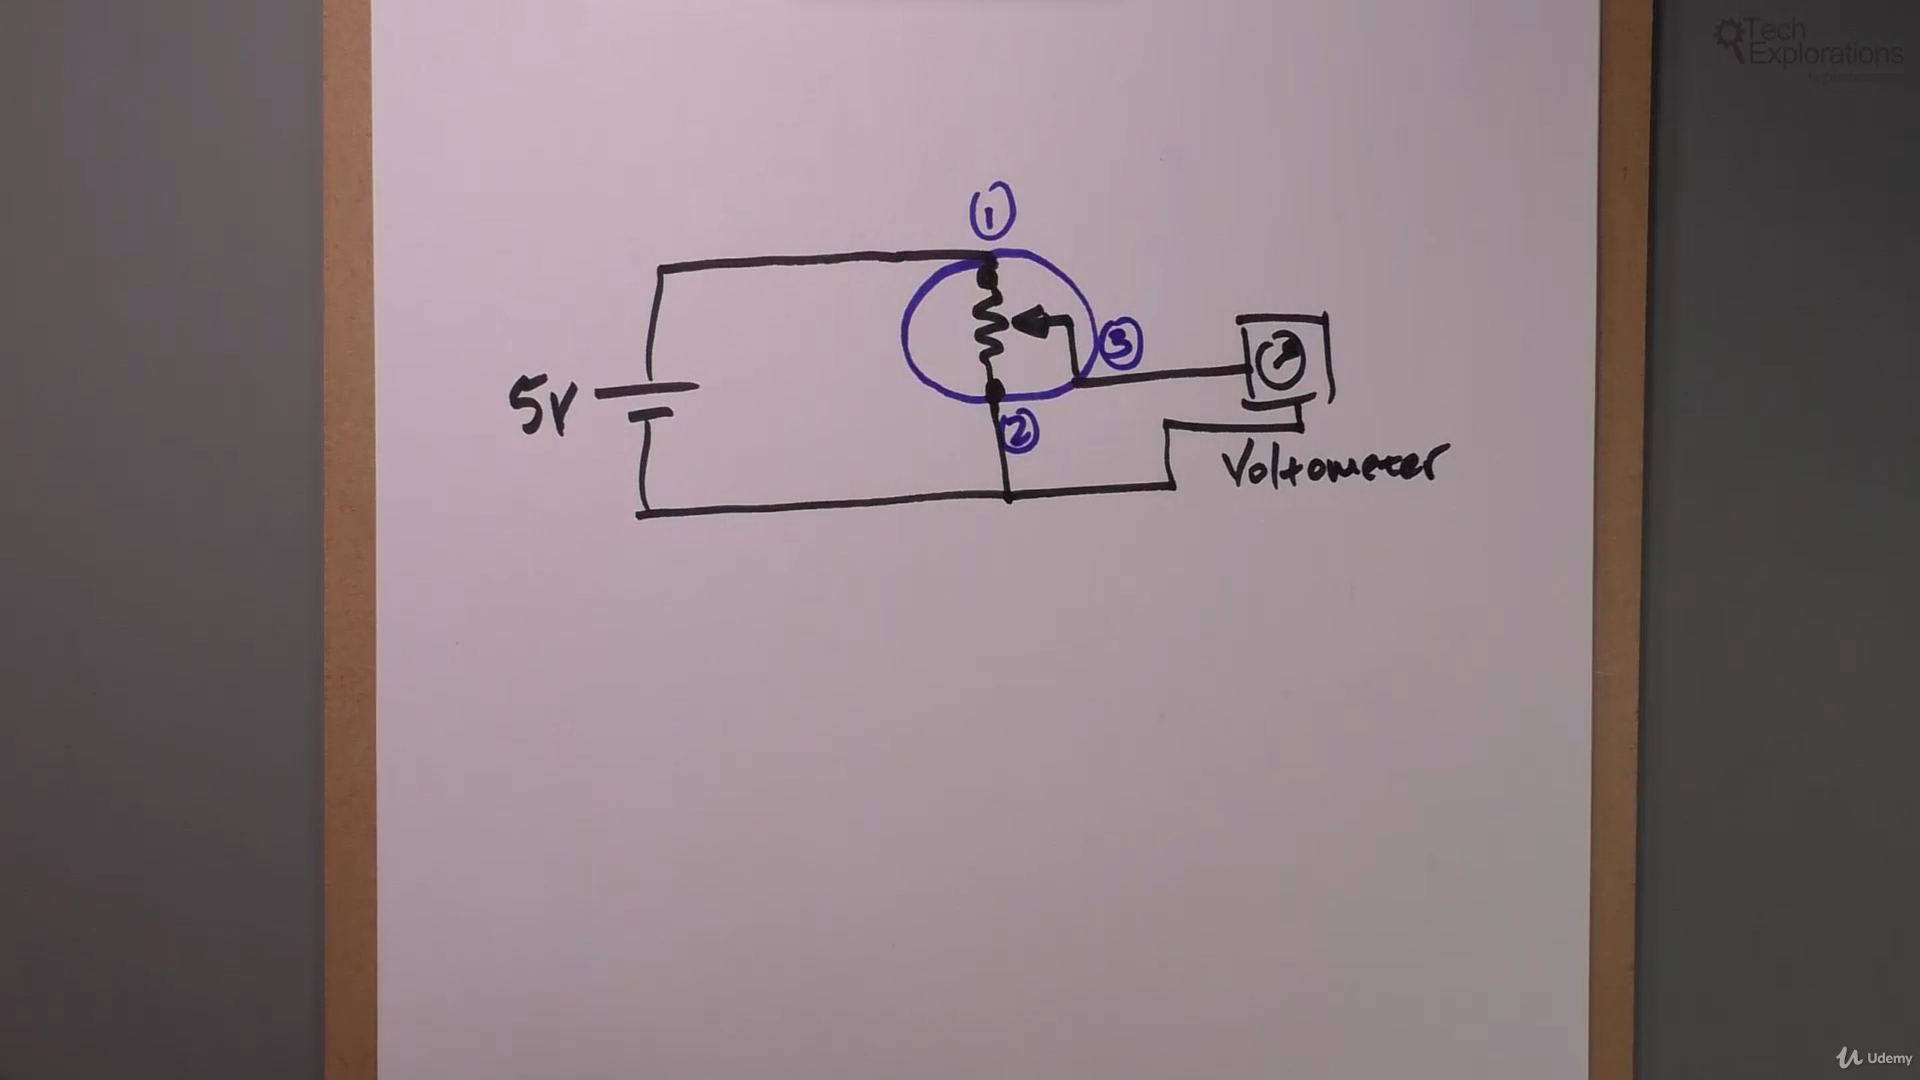 Tech
Explorations
1
3
5V
2
Voltometer
Udemy